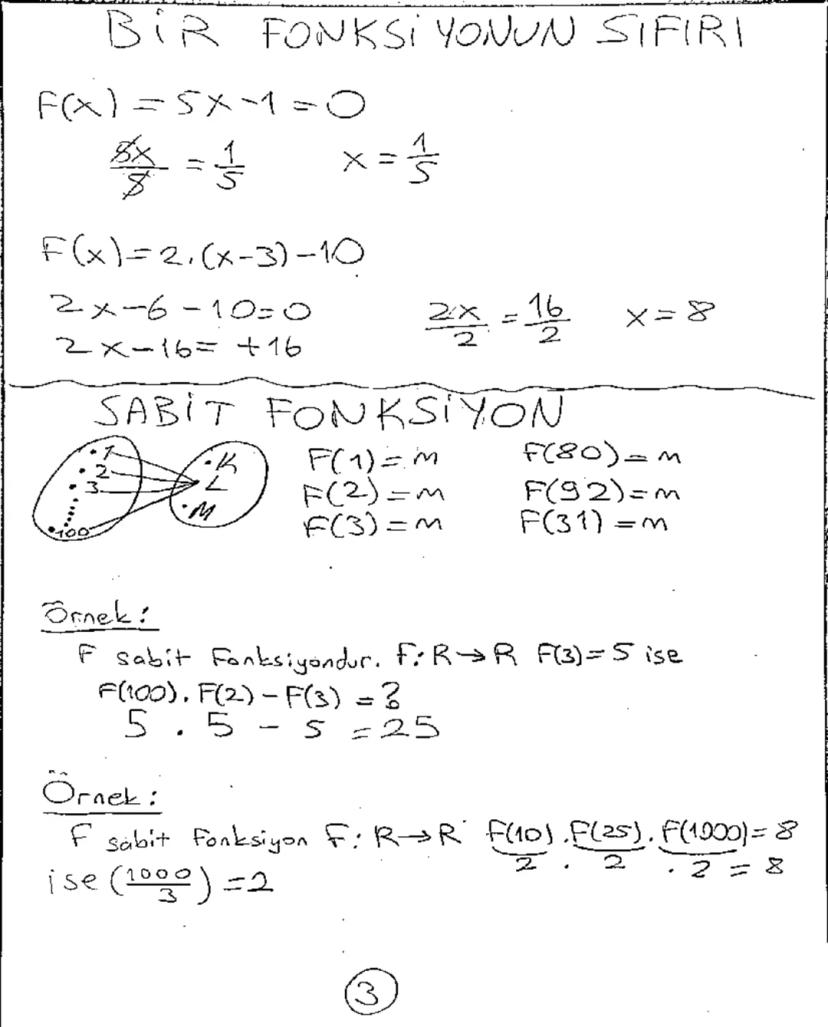 BİR FONKSİYONUN SIFIRI
F(x) = 5x-1 = 0
5x/5 = 1/5 x = 1/5
F(x) = 2.(x-3)-10
2x-6-10=0
2x-16= +16
2x/2 = 16/2 x = 8
SABİT FONKSİYON
1 2 3 100
K L M
F(1) = m F(80) = m
F(2) = m F(92) = m
F(3) = m F(31) = m
Örnek:
F sabit Fonksiyondur. f: R→R F(3) = 5 ise
F(100). F(2) - F(3) = ?
5 . 5 - 5 = 25
Örnek:
F sabit Fonksiyon F: R→R F(10) . F(25) . F(1000) = 8
2 . 2 . 2 = 8
ise (1000/3) = 2
3